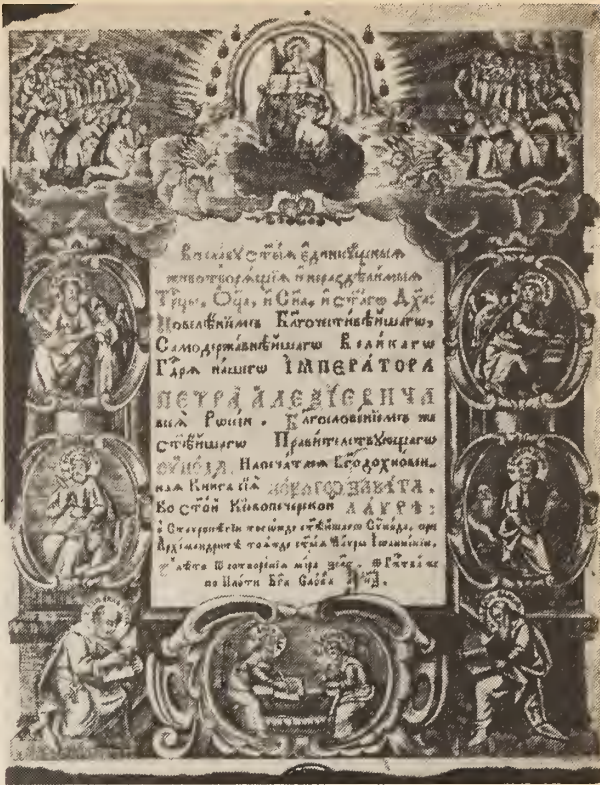 Въ славу ст҃ыѧ єдиносꙋщныѧ
животворѧщїѧ и нераздѣлимыѧ
Трⷪ҇цы, Оц҃а, и Сн҃а, и ст҃агѡ Дх҃а:
Повелѣнїемъ Бл҃гочестивѣйшагѡ,
Самодержавнѣйшагѡ Великагѡ
Гдⷭ҇рѧ нашегѡ ІМПЕРА́ТОРА
ПЕТРА̀ АЛЕѮІЕВИЧА
всеѧ Рѡссїи. Бл҃гословенїемъ же
ст҃ѣйшагѡ Правителствꙋющагѡ
СѴНОДА. Напечатасѧ Бг҃одохновен-
наѧ Книга сїѧ НОВАГѠ ЗАВѢТА.
Во ст҃ой Кїевопечерской ЛАѴРѢ:
Ставропигїи тогѡжде ст҃ѣйшагѡ Сѵнода, при
Архїмандритѣ тоѧжде ст҃ыѧ Лаѵры Іѡанникїи,
лѣта ѿ сотворенїѧ мїра Рⷤ҇тва же
по Плоти Бг҃а Слова